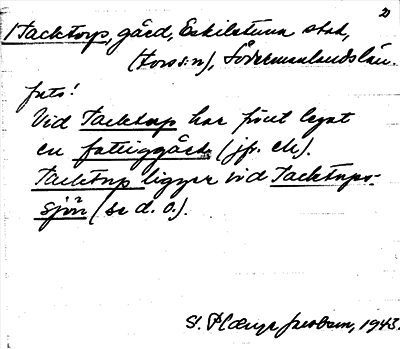 20
Tacktorp, gård, Eskilstuna stad,
(Fors s:n), Södermanlands län.
foto!
Vid Tacktorp har förut legat
en fattiggård (jfr. ek).
Tacktorp ligger vid Tacktorps-
sjön (se d. o.).
1943.